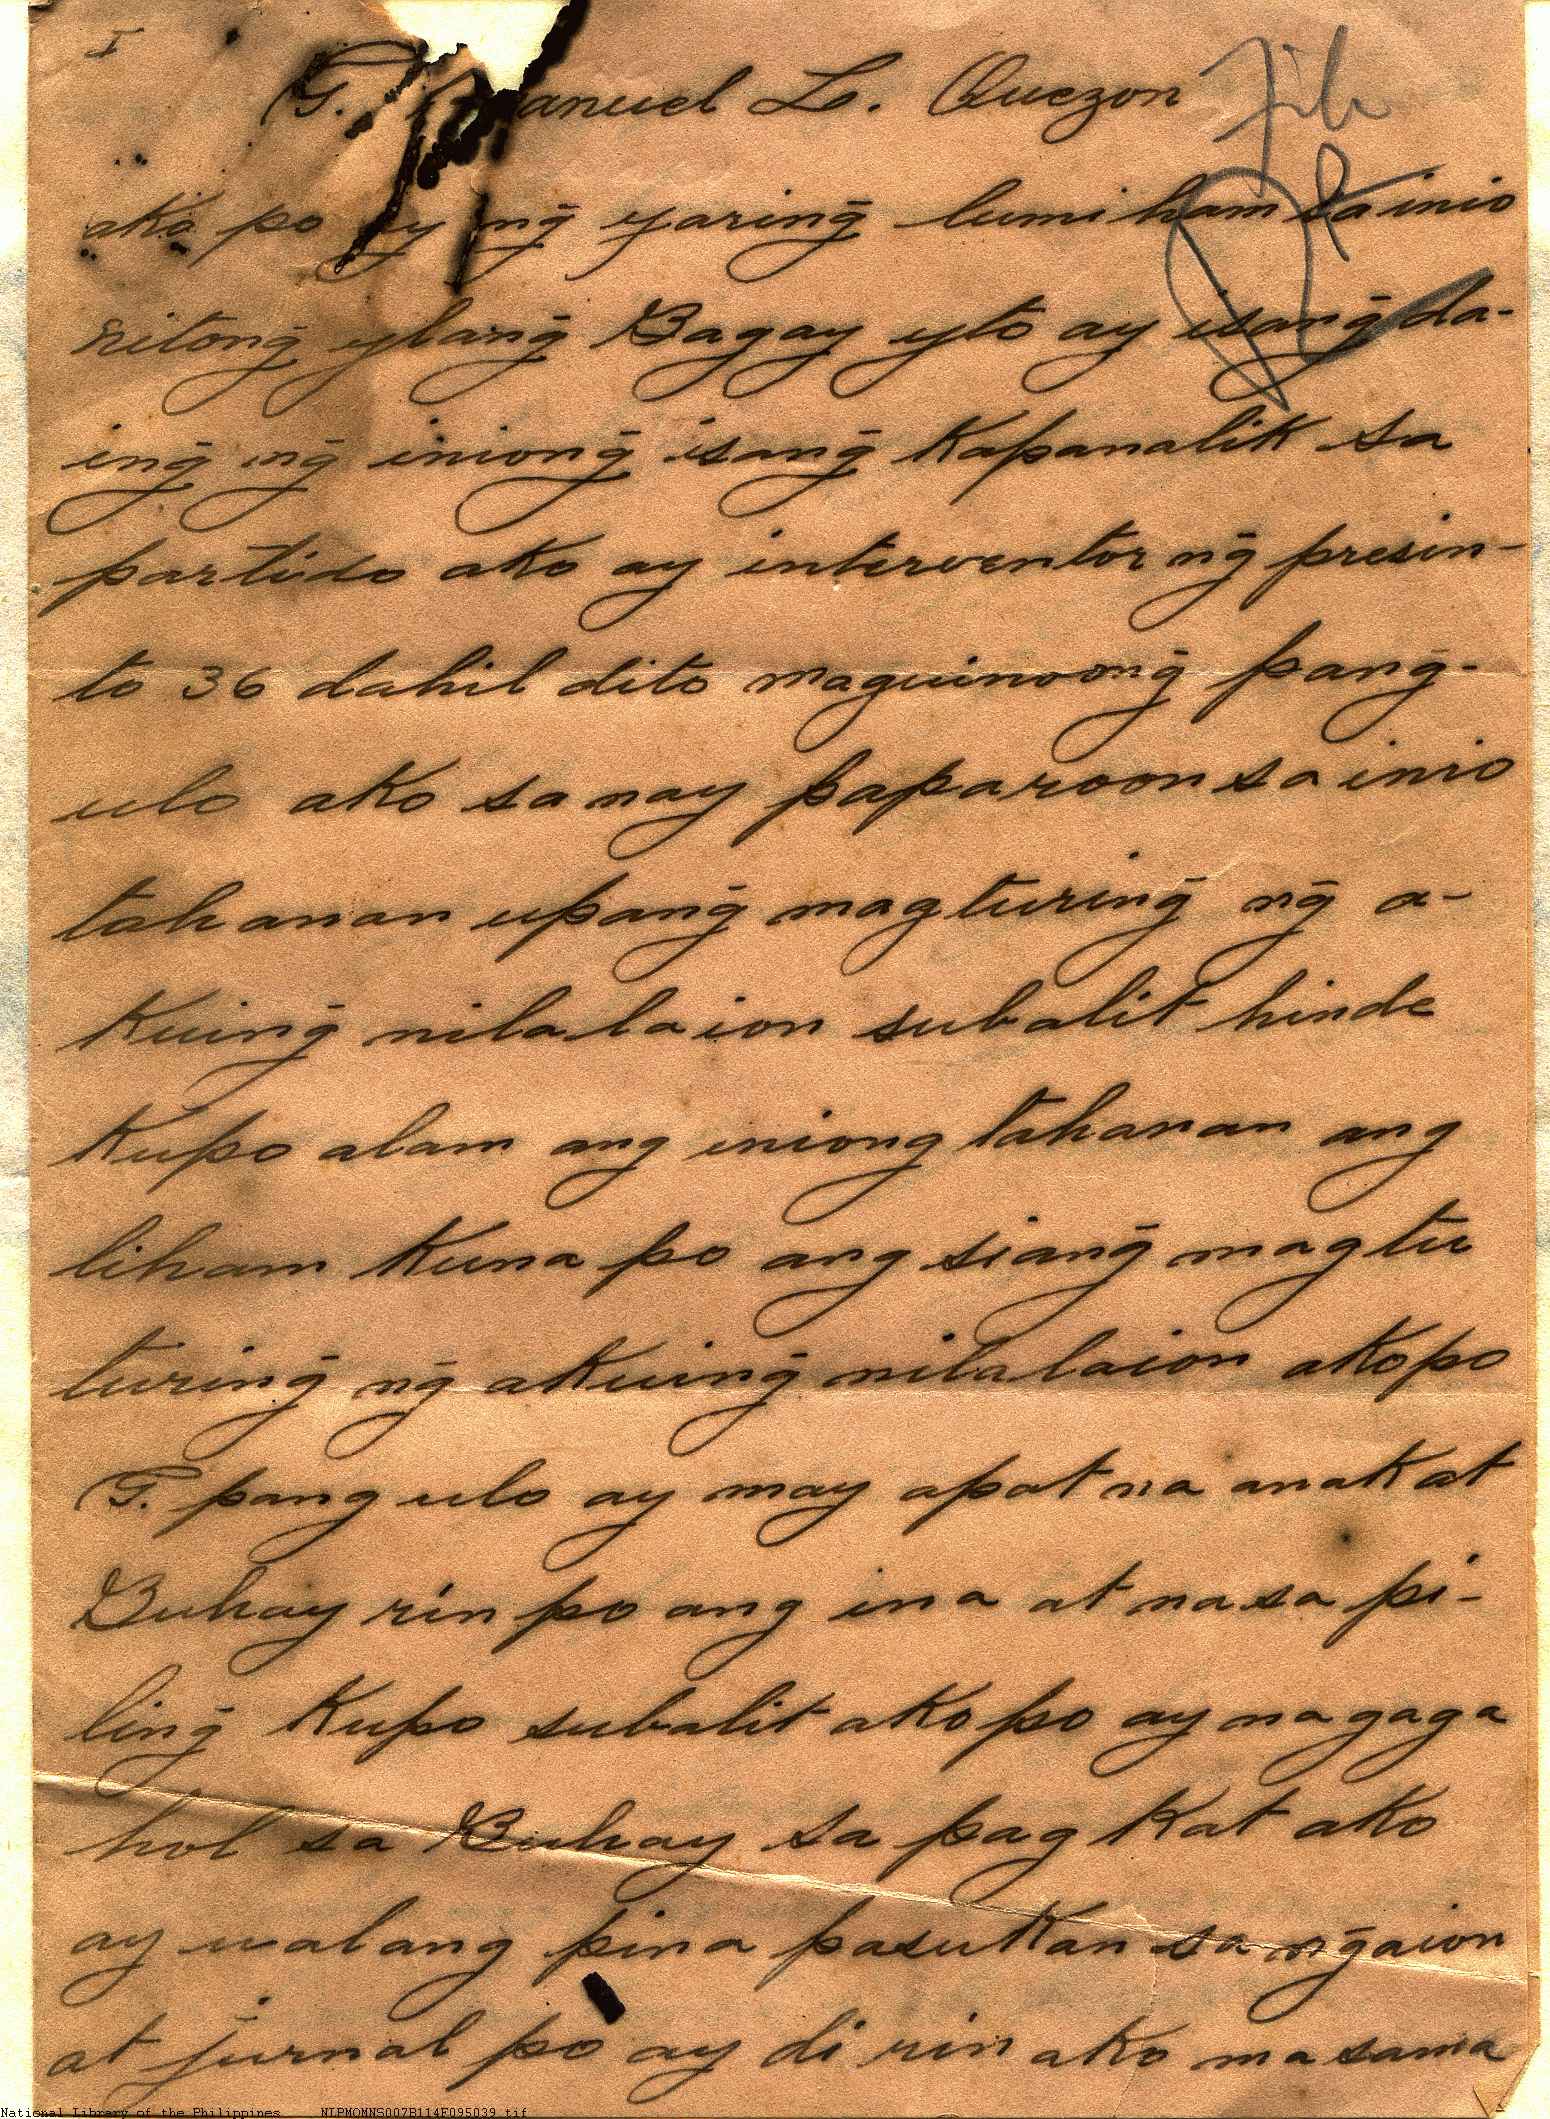 I
G. Manuel L. Quezon
File
ako po ay ng̃ yaring̃ lumiham sa inio
nitong̃ ylang̃ Bagay yto ay isang̃ da-
ing̃ ng̃ iniong̃ isang̃ Kapanalik sa
partido ako ay interventor ng̃ presin-
to 36 dahil dito maguinoong̃ pang̃-
ulo ako sanay paparoon sa inio
tahanan upang̃ magturing̃ ng̃ a-
Kuing̃ nilalaion subalit hinde
Kupo alam ang iniong tahanan ang
liham Kuna po ang siang̃ magtu
turing̃ ng̃ aKuing̃ nilalaion akopo
G. pang ulo ay may apat na anak at
Buhay rin po ang ina at nasa pi-
ling̃ Kupo subalit akopo ay nagaga
hol sa Buhay sa pag Kat ako
ay walang pina pasukan sa ng̃aion
at jurnal po ay di rin ako masama
National Library of the Philippines NLPMOMNS007B114F095039.tif